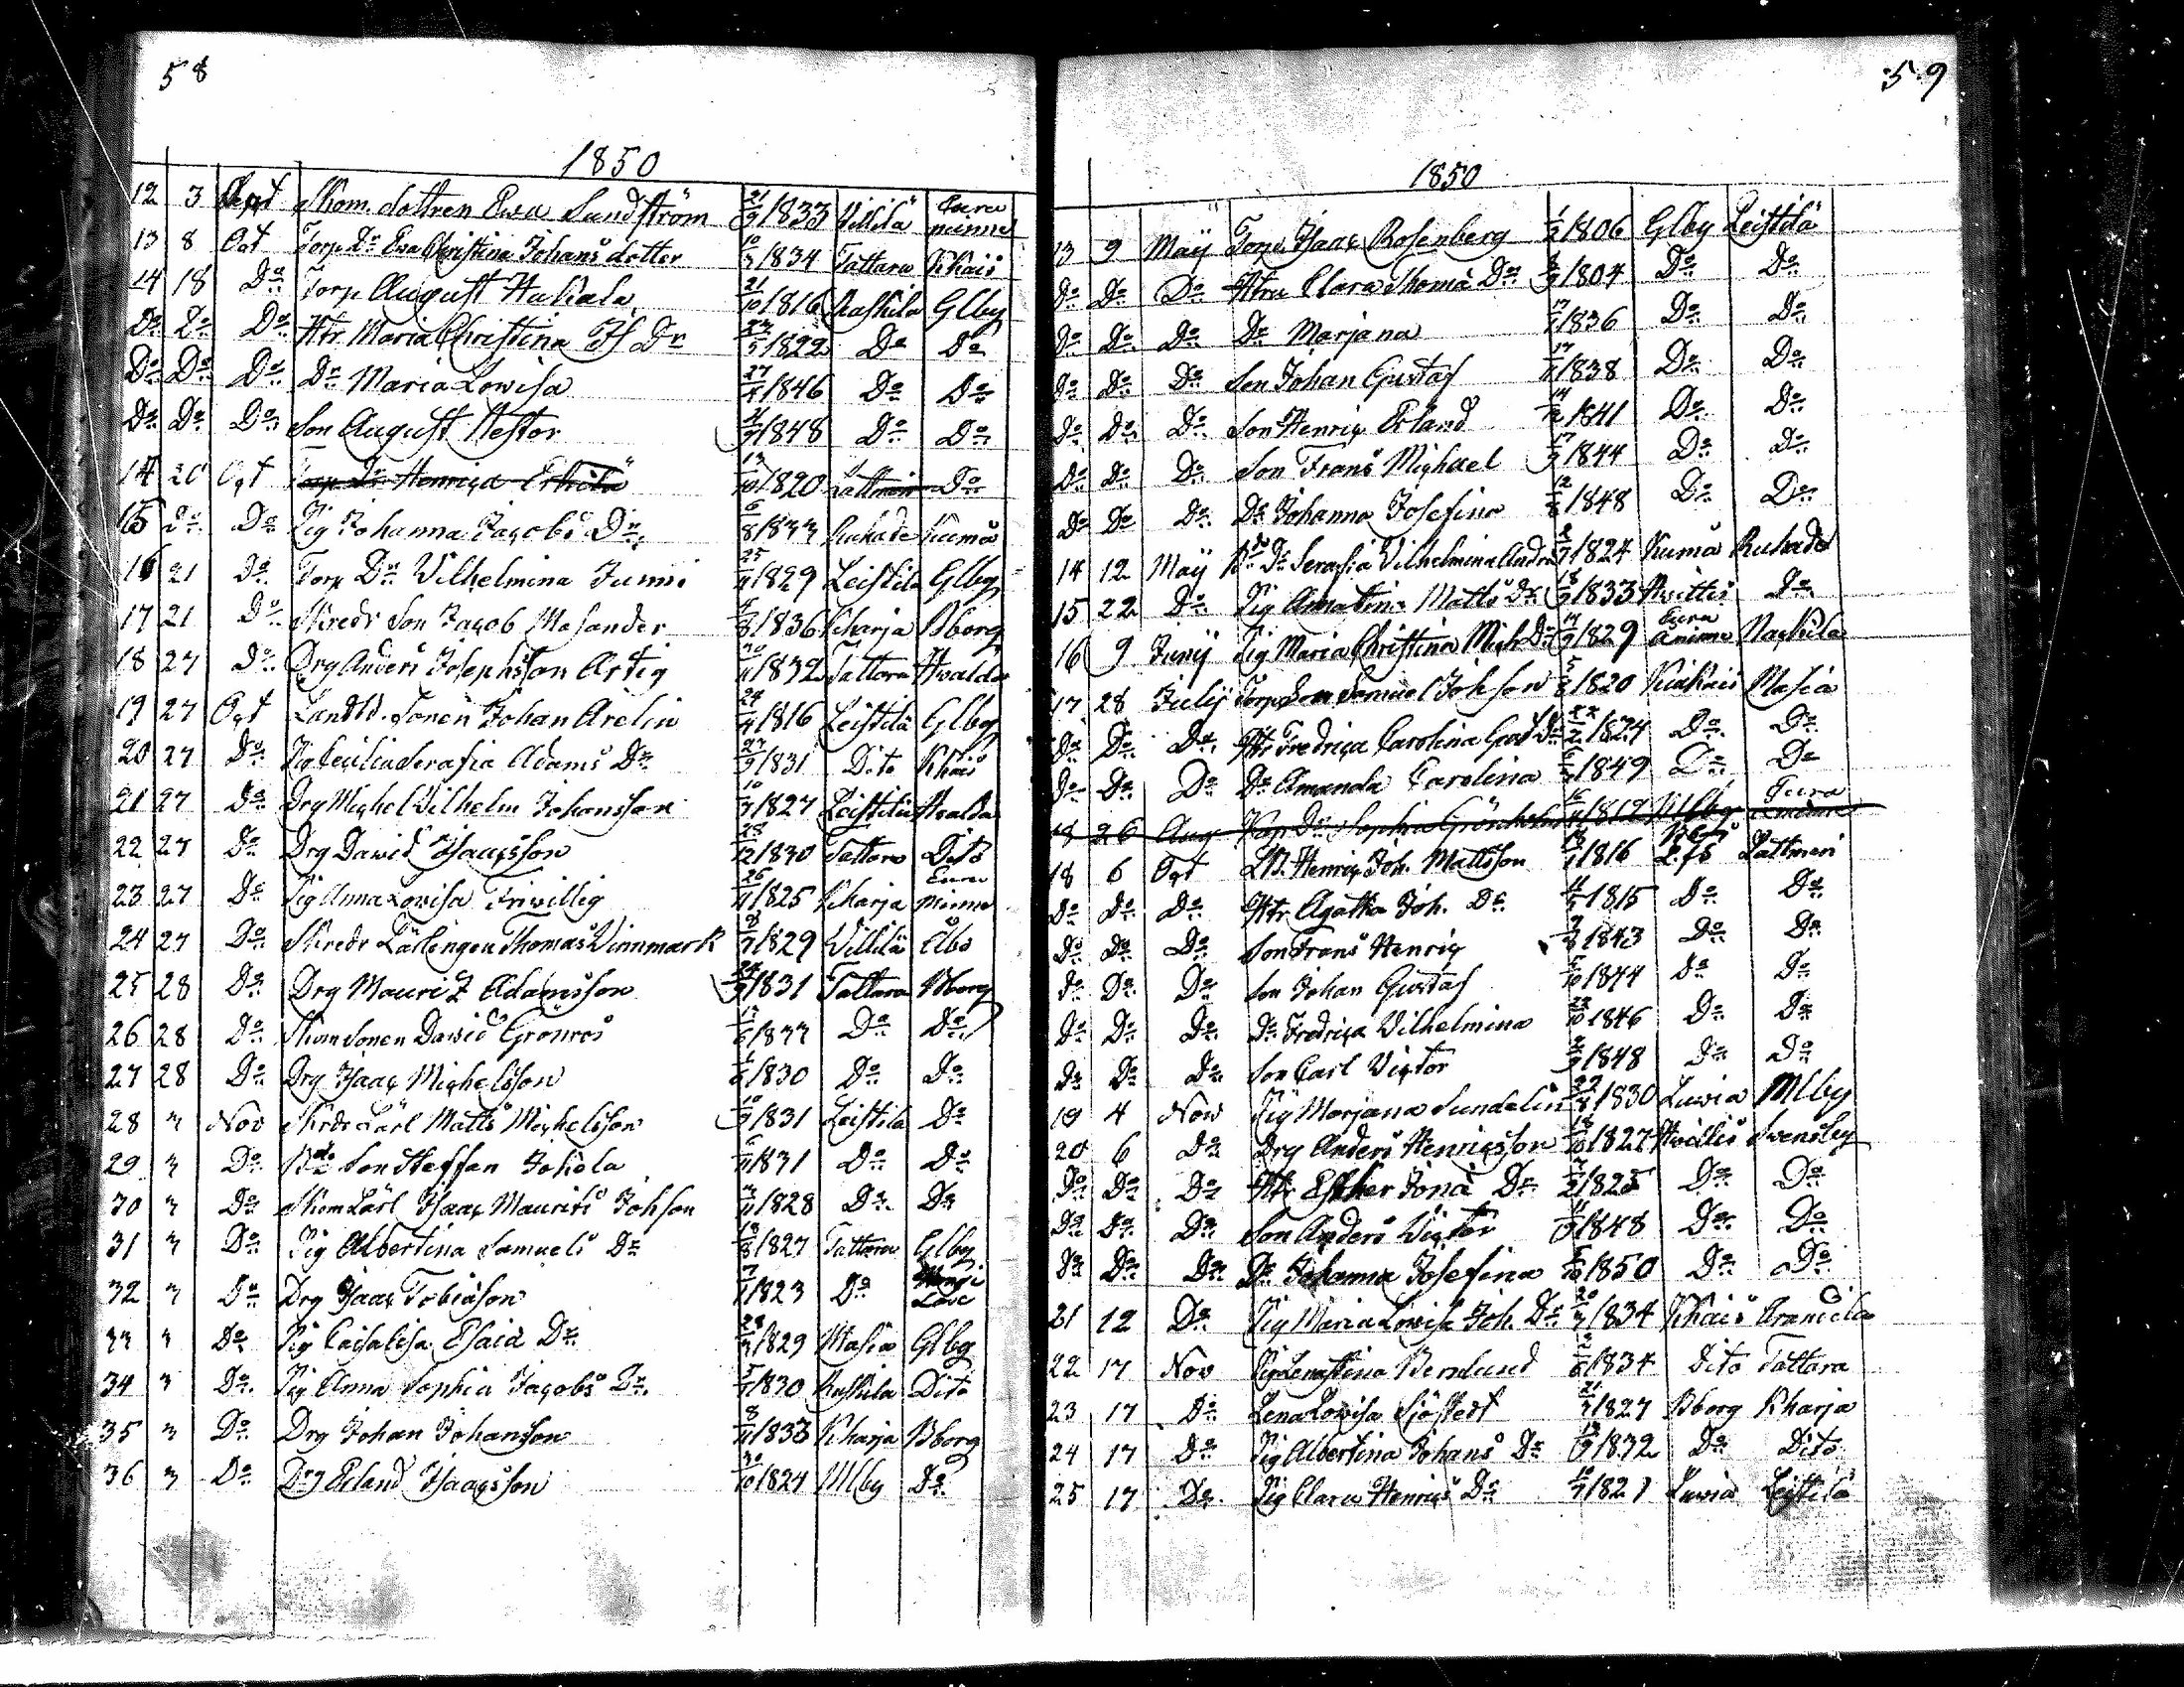 58
1850
12 3 Sept Skom. dottren Ewa Sundström 21/9 1833 Villilä Eura minne
13 8 Oct Torp Dr Eva Christina Johans dotter 10/3 1834 Tattara Kkais
14 18 Do Torp August Hukala 21/10 1816 Raskila Glby
Do Do Do Hr Maria Christina Is Dr 23/5 1822 Do Do
Do Do Do Dr Maria Lowisa 27/4 1846 Do Do
Do Do Do Son August Nestor 1848 Do Do
14 20 Oct Torp Dr Henrica Erkilä 13/10 1820 Lattmeri Do
15 Do Do Pig Johanna Jacobs Dr 6/8 1833 Ruhade Kumå
16 21 Do Torp Dr Vilhelmina Junni 25/11 1829 Leistilä Glby
17 21 Do Skredr Son Jacob Masander 1836 Kharja Bborg
18 27 Do Drg Anders Josephsson Artig 1832 Tattara Hvalda
19 27 Oct Landtb. Sonen Johan Arelin 24/4 1816 Leistilä Glby
20 27 Do Pig Cecilia Serafia Adams Dr 27/9 1831 Dito Kkais
21 27 Do Drg Michel Vilhelm Johansson 10/7 1827 Leistilä Hvalda
22 27 Do Drg David Isacsson 28/12 1830 Tattara Dito
23 27 Do Pig Anna Lowisa Friwillig 26/11 1825 Kharja Eura minne
24 27 Do Skredr Lärlingen Thomas Vinnmark 1829 Villilä Åbo
25 28 Do Drg Mauritz Adamsson 1831 Tattara Bborg
26 28 Do Skom Sonen David Grönroos 13/6 1833 Do Do
27 28 Do Drg Isaac Michelsson 1830 Do Do
28 3 Nov Skrdr Lärl Matts Michelsson 10/9 1831 Leistila Do
29 3 Do Bde Son Steffan Jokela 1831 Do Do
30 3 Do Skom Lärl Isaac Maurits Johson 1828 Do Do
31 3 Do Pig Albertina Samuels Dr 18/8 1827 Tattara Glby
32 3 Do Drg Isaac Tobiasson 1823 Do
33 3 Do Pig Caisa Lisa Esaia Dr 1829 Masia Glby
34 3 Do Pig Anna Sophia Jacobs Dr 1830 Raskila Dito
35 3 Do Drg Johan Johansson 8/11 1833 Kharja Bborg
36 3 Do Drg Erland Isacsson 30/10 1824 Mlby Do
59
1850
13 9 Maij Torp Isaac Rosenberg 1/2 1806 Glby Leistilä
Do Do Do Hru Clara Thoma Dr 1804 Do Do
Do Do Do Dr Marjana 1836 Do Do
Do Do Do Son Johan Gustaf 1838 Do Do
Do Do Do Son Henric Erland 1841 Do Do
Do Do Do Son Frans Michael 17/9 1844 Do Do
Do Do Do Dr Johanna Josefina 12/8 1848 Do Do
14 12 Maij Bde Dr Serafia Vilhelmina Andrs 1824 Kumå Ruhade
15 22 Do Pig Anna Stina Matts Dr 18/9 1833 Hvittis Do
16 9 Junij Pig Maria Christina Mich Dr 1829 Eura åminne Naskila
17 28 Julij Torp Son Samuel Johson 1820 Kiukais Masia
Do Do Do Hr Fredrica Carolina Gust Dr 1824 Do Do
Do Do Do Dr Amanda Carolina 1849 Do Do
18 26 Aug Dr Sophia Grönholm 1819 Mlby Eura åminne
18 6 Oct LB. Henric Joh. Mattsson 1816 Bborg L.fs Lattmeri
Do Do Do Hr Agatha Joh. Dr 1815 Do Do
Do Do Do Son Frans Henric 1843 Do Do
Do Do Do Son Johan Gustaf 1844 Do Do
Do Do Do Dr Fredrica Vilhelmina 22/10 1846 Do Do
Do Do Do Son Carl Victor 1848 Do Do
19 4 Nov Pig Marjana Sundelin 1830 Luvia Mlby
20 6 Do Drg Anders Henricsson 1827 Hvittis Svensby
Do Do Do Hr Esther Jona Dr 1825 Do Do
Do Do Do Son Anders Victor 1848 Do Do
Do Do Do Dr Johanna Josefina 1850 Do Do
21 12 Do Pig Maria Lovisa Joh. Dr 20/3 1834 Kkais
22 17 Nov Pig Lena Stina Bernlund 1834 Dito Tattara
23 17 Do Lena Lovisa Sjöstedt 1827 Bborg Kharja
24 17 Do Pig Albertina Johans Dr 13/9 1832 Do Dito
25 17 Do Pig Clara Henrics Dr 1821 Luvia Leistilä